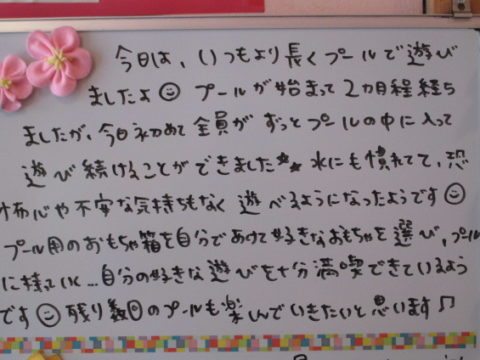 今日は、いつもより長くプールで遊び
ましたよ☺ プールが始まって2カ月程経ち
ましたが、今日初めて全員がずっとプールの中に入って
遊び続けることができました★★ 水にも慣れてて、恐
怖心や不安な気持ちもなく遊べるようになったようです☺
プール用のおもちゃ箱を自分であけて好きなおもちゃを選び、プール
に持っていく…自分の好きな遊びを十分満喫できているよう
です☺ 残り数回のプールも楽しんでいきたいと思います♪